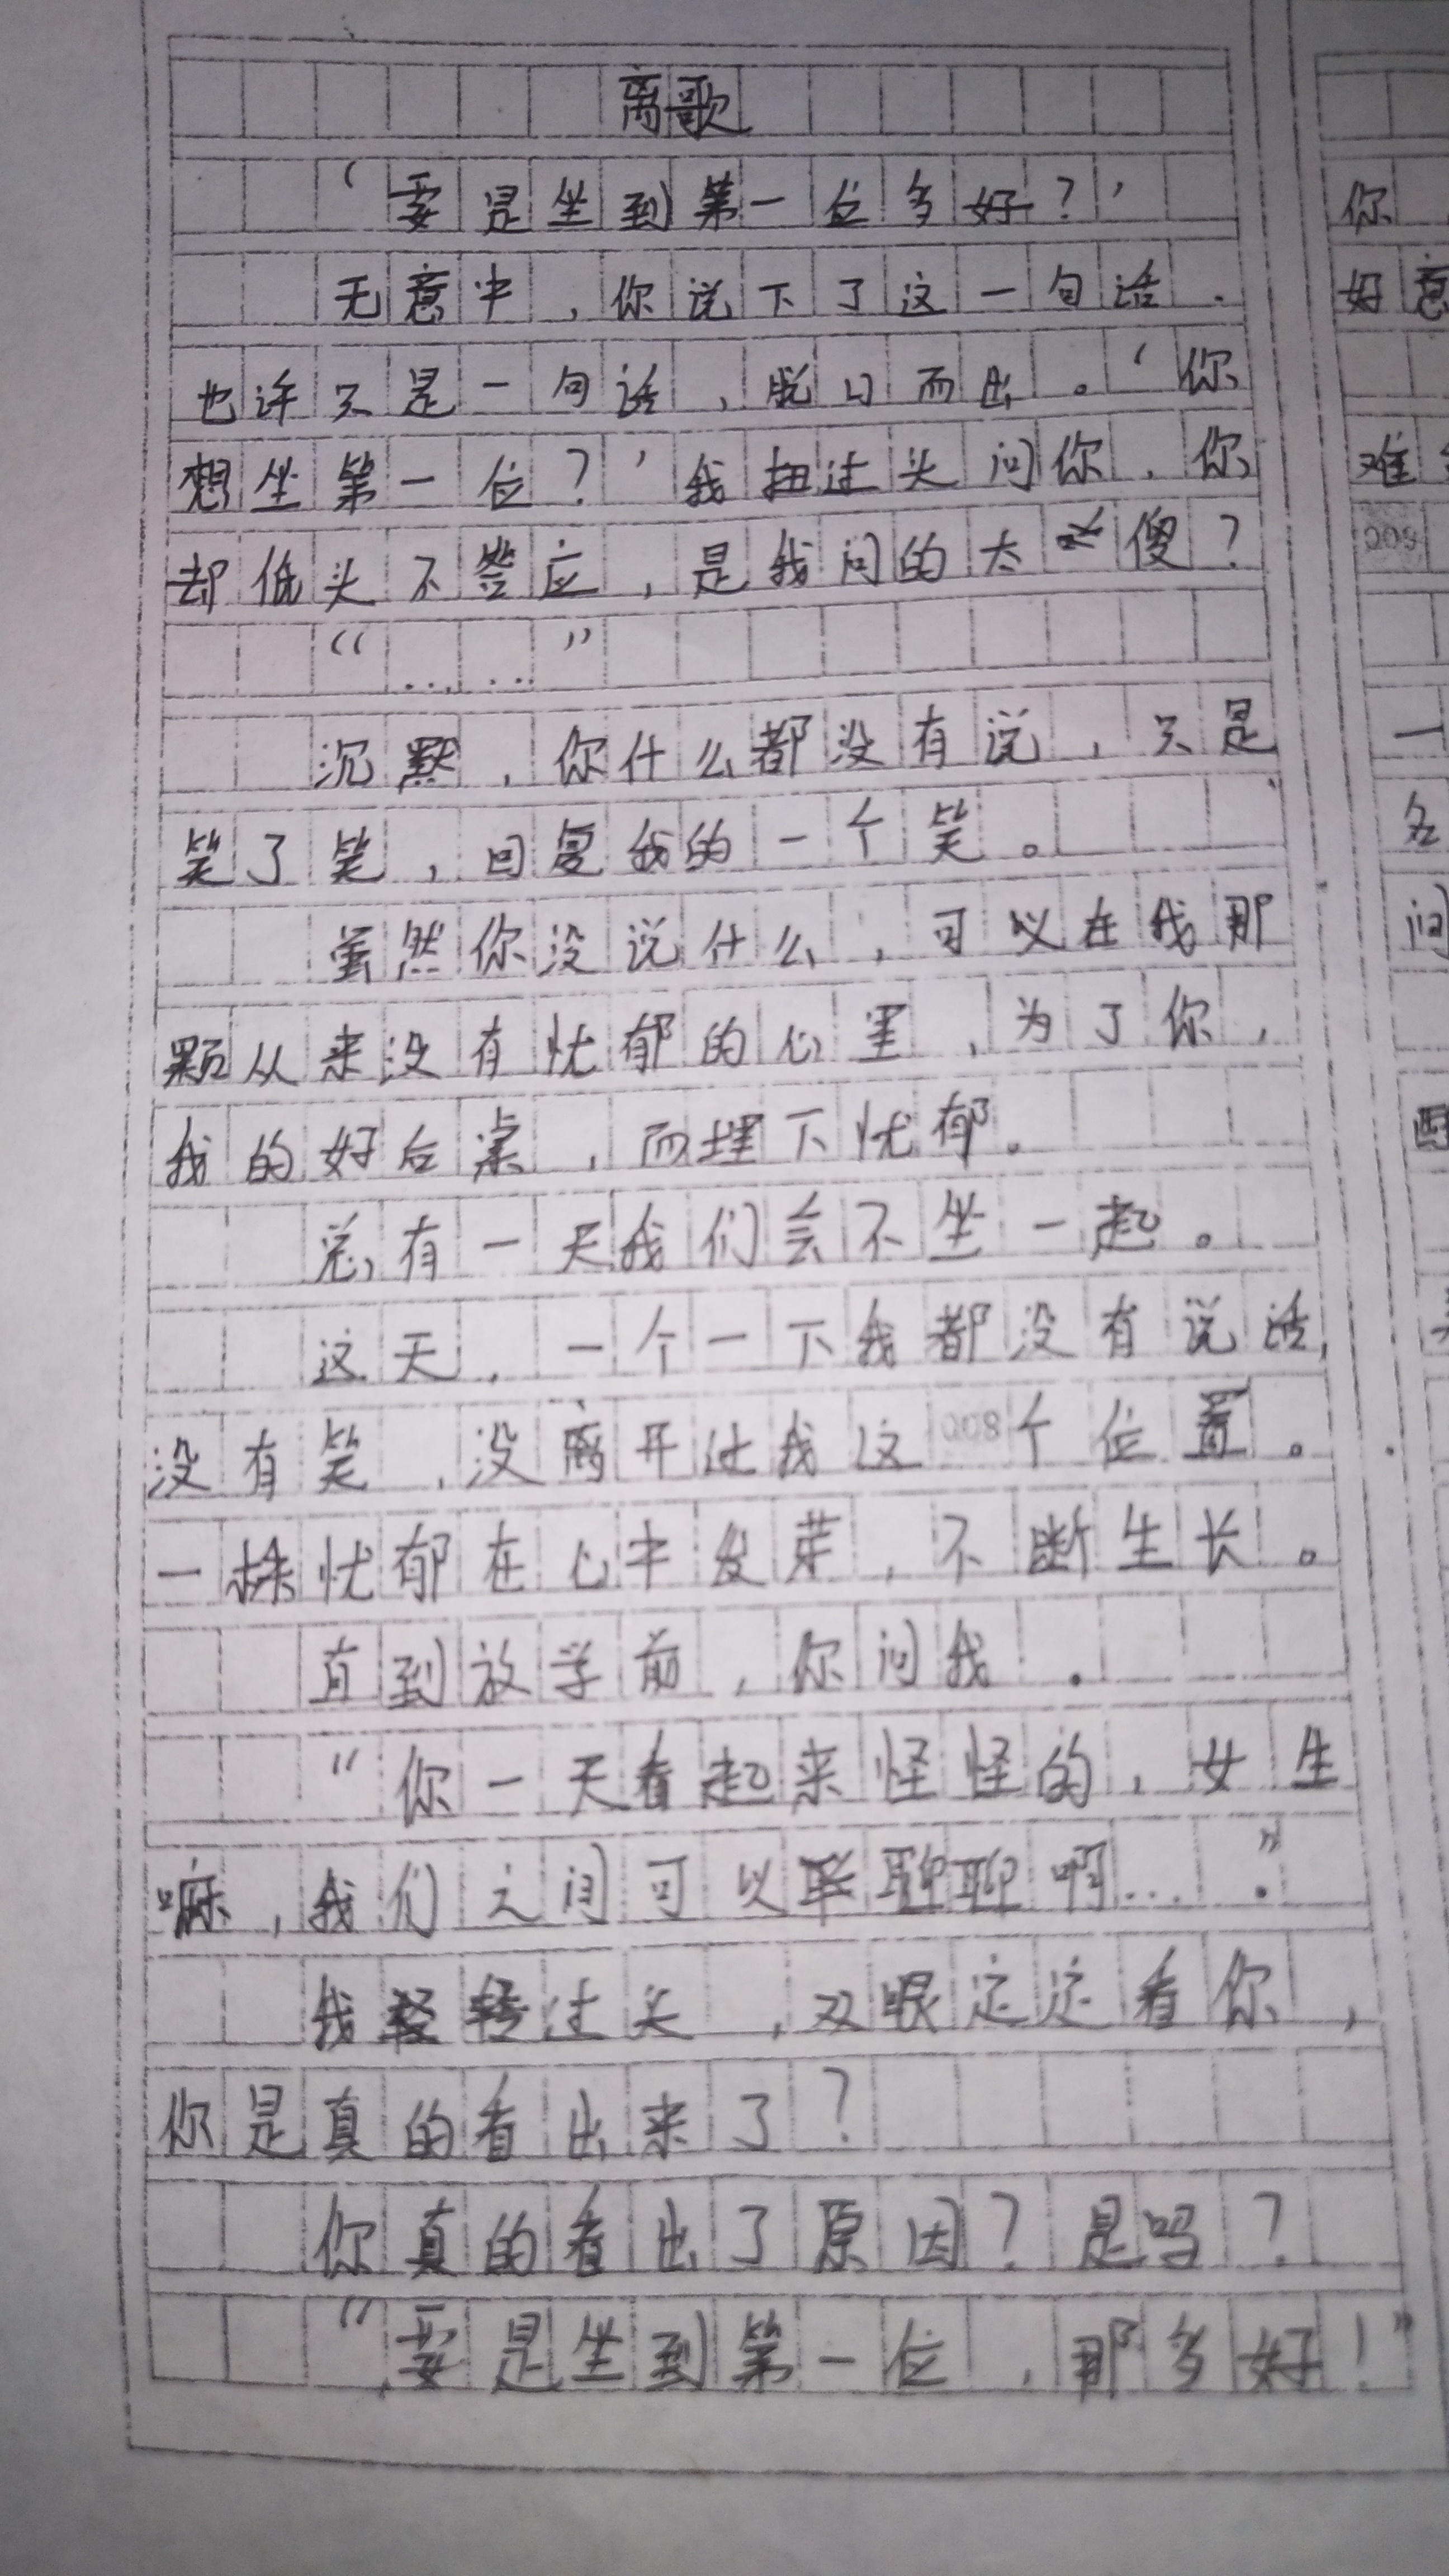 离歌
‘要是坐到第一位多好？’
无意中，你说下了这一句话．
也许只是一句话，脱口而出。‘你
想坐第一位？’我扭过头问你，你
却低头不答应，是我问的太傻？
“……”
沉默，你什么都没有说，只是
笑了笑，回复我的一个笑。
虽然你没说什么，可以在我那
颗从来没有忧郁的心里，为了你，
我的好后桌，而埋下忧郁。
总有一天我们会不坐一起。
这天，一个一下我都没有说话，
没有笑，没离开过我这个位置。
008
一株忧郁在心中发芽，不断生长。
直到放学前，你问我．
“你一天看起来怪怪的，女生
嘛，我们之间可以聊聊啊…．”
我轻转过头，双眼定定看你，
你是真的看出来了？
你真的看出了原因？是吗？
“要是坐到第一位，那多好！”
你
好意
难
008
一
名
问